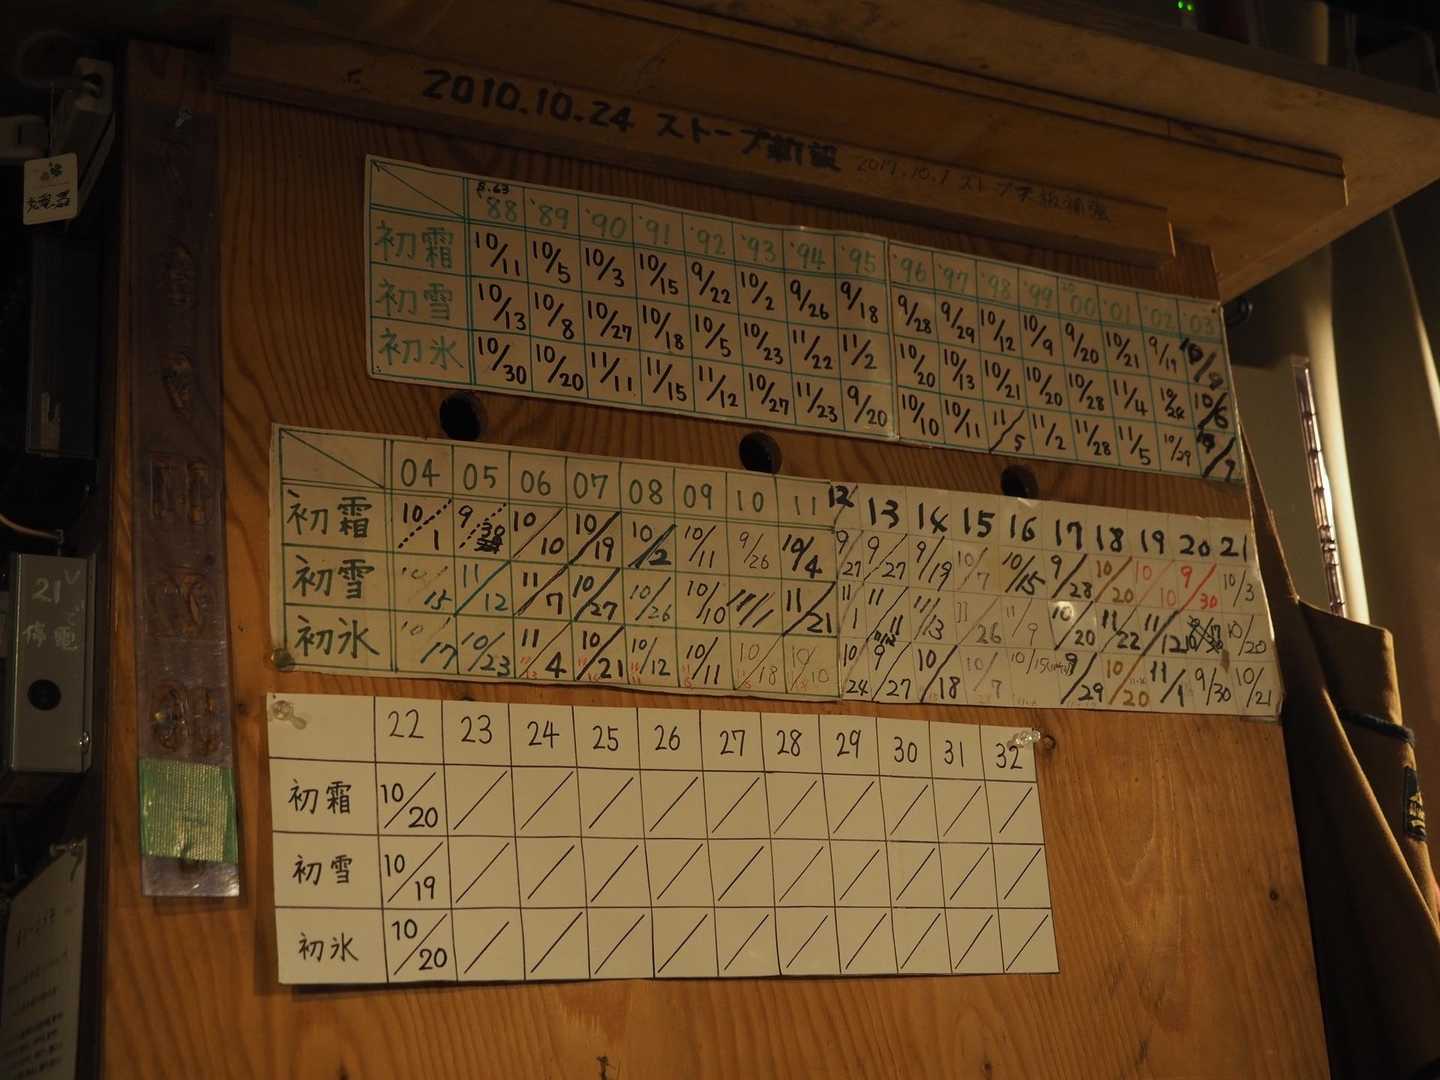 2010.10.24 ストーブ新設
2017.10.1
S.63
'88 '89 '90 '91 '92 '93 '94 '95 '96 '97 '98 '99 '00 '01 '02 '03
初霜 10/11 10/5 10/3 10/15 9/22 10/2 9/26 9/18 9/28 9/29 10/12 10/9 9/20 10/21 9/19 10/9
初雪 10/13 10/8 10/27 10/18 10/5 10/23 11/22 11/2 10/20 10/13 10/21 10/20 10/28 11/4 10/28 10/6
初氷 10/30 10/20 11/11 11/15 11/12 10/27 11/23 9/20 10/10 10/11 11/5 11/2 11/28 11/5 10/29
04 05 06 07 08 09 10 11 12 13 14 15 16 17 18 19 20 21
初霜 10/1 9/30 10/10 10/19 10/2 10/11 9/26 10/4 9/27 9/27 9/19 10/7 10/15 9/28 10/20 10/10 9/30 10/3
初雪 10/15 11/12 11/7 10/27 10/26 10/10 11/1 11/21 11/1 11/11 11/13 11/26 11/9 10/20 11/22 11/12 10/20
初氷 10/17 10/23 11/4 10/21 10/12 10/11 10/18 10/10 10/24 9/27 10/18 10/7 10/15 9/29 10/20 11/1 9/30 10/21
22 23 24 25 26 27 28 29 30 31 32
初霜 10/20 / / / / / / / / / /
初雪 10/19 / / / / / / / / / /
初氷 10/20 / / / / / / / / / /
21Vで
停電